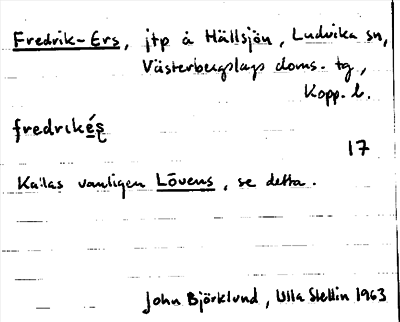 Fredrik-Ers, jtp å Hällsjön, Ludvika sn,
Västerbergslags doms. tg,
Kopp. l.
fredrikés
17
Kallas vanligen Lövens, se detta.
John Björklund, Ulla Stellin 1963